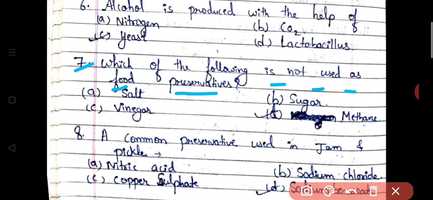 6. Alcohol is produced with the help of
(a) Nitrogen (b) CO2
(c) yeast (d) Lactobacillus
7. which of the following is not used as
food preservatives?
(a) Salt (b) Sugar
(c) Vinegar (d) Methane
8. A common preservative used in Jam &
pickle →
(a) Nitric acid (b) Sodium chloride
(c) copper Sulphate (d)